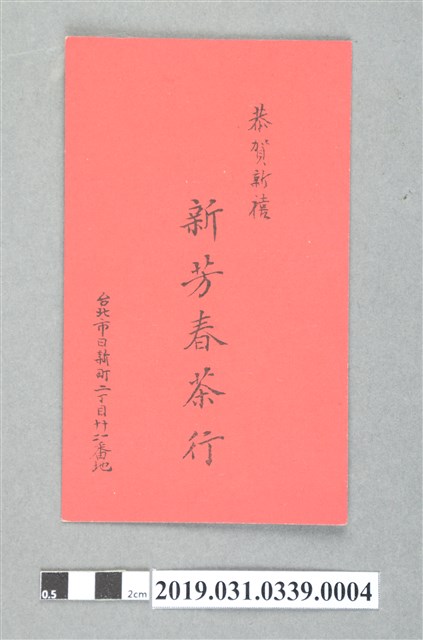 恭賀新禧
新芳春茶行
台北市日新町二丁目廿二番地
0.5
2cm
2019.031.0339.0004